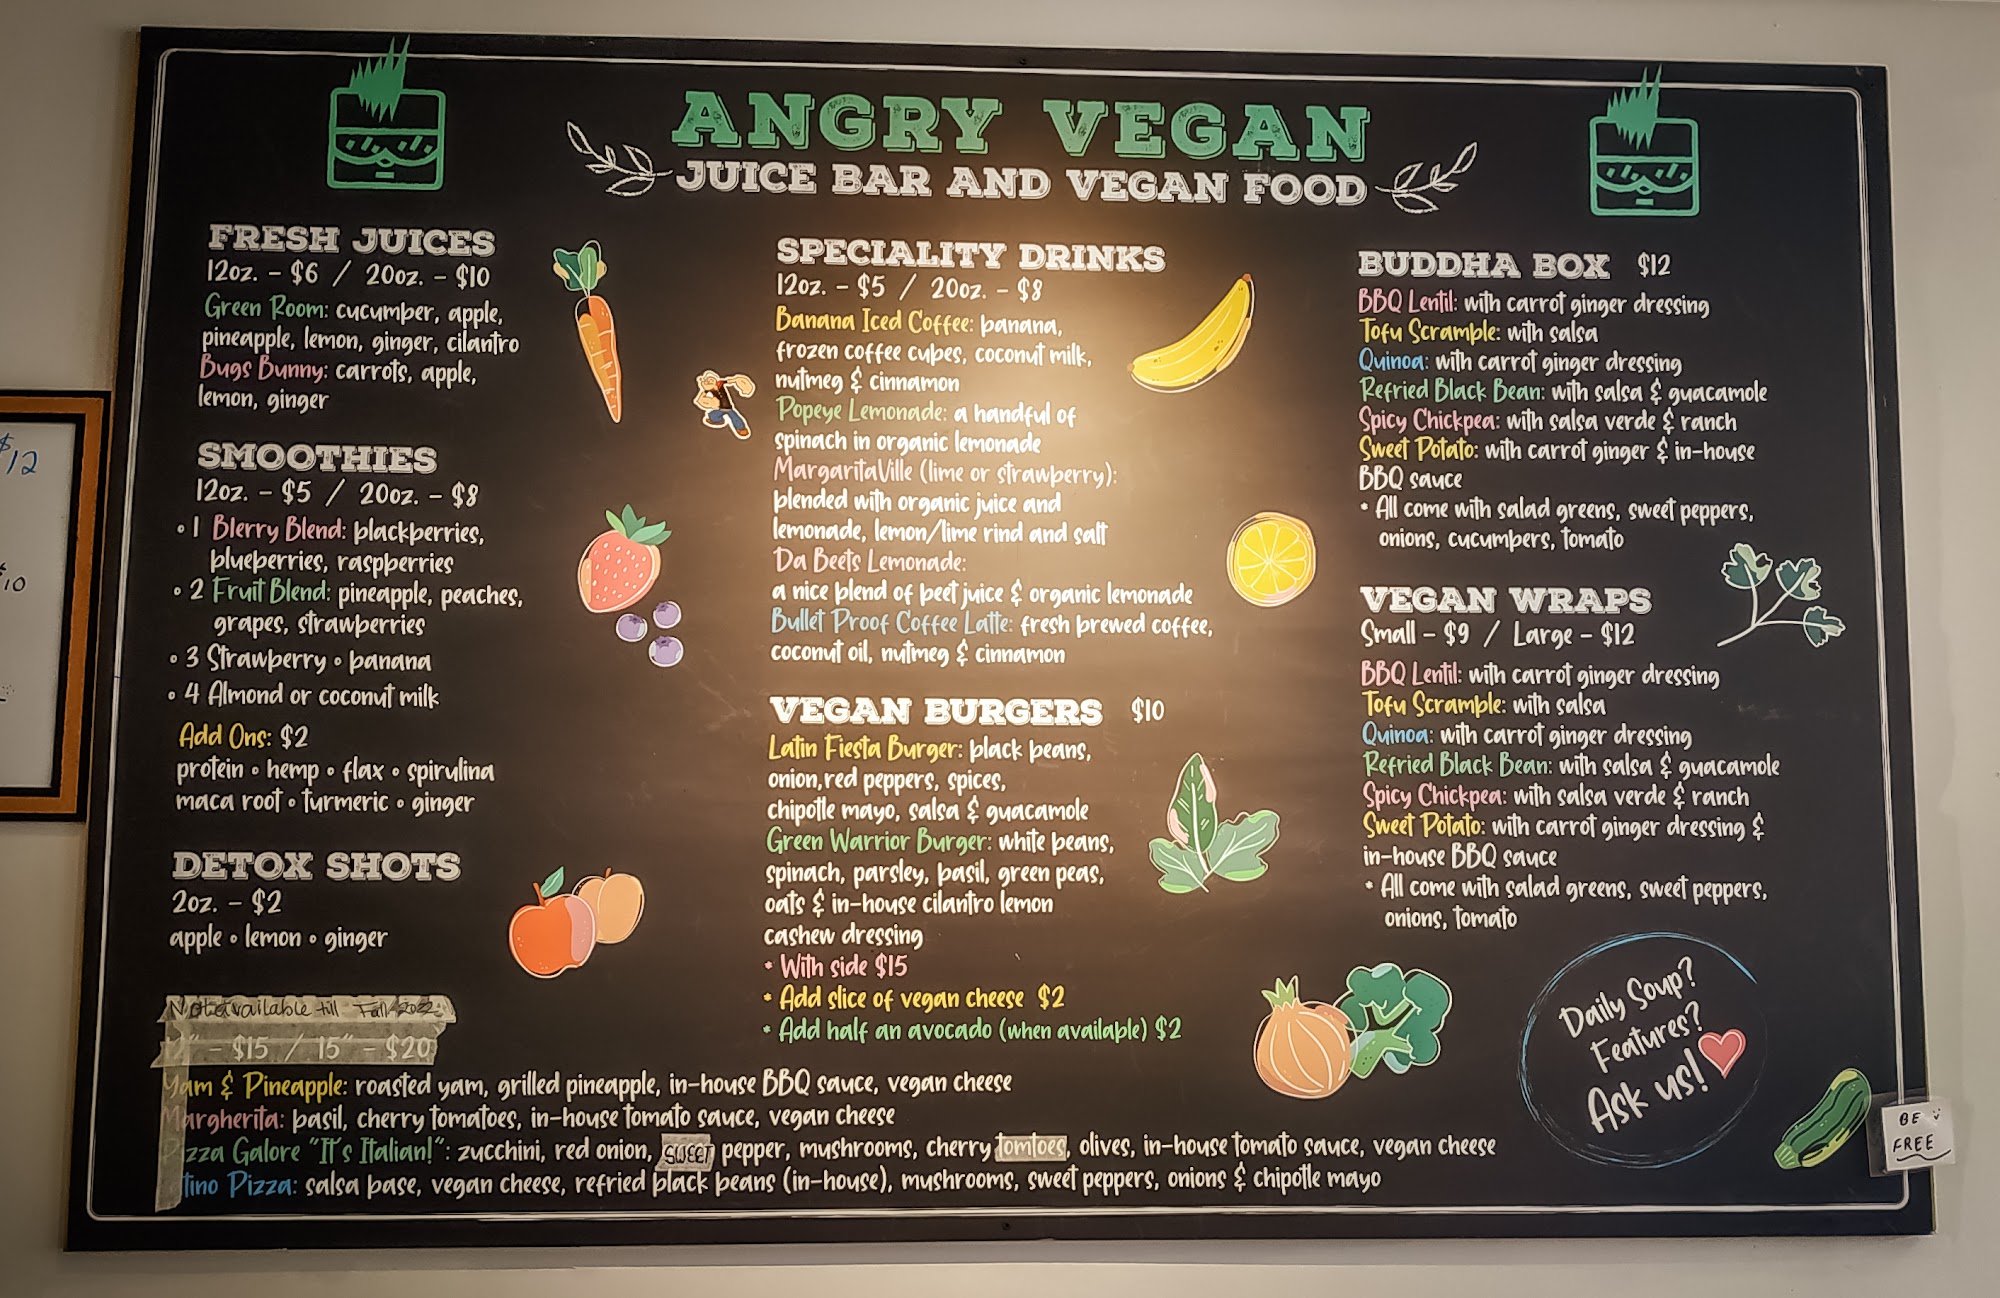 ANGRY VEGAN
JUICE BAR AND VEGAN FOOD
FRESH JUICES
12oz. - $6 / 20oz. - $10
Green Room: cucumber, apple,
pineapple, lemon, ginger, cilantro
Bugs Bunny: carrots, apple,
lemon, ginger
SMOOTHIES
12oz. - $5 / 20oz. - $8
• 1 Blerry Blend: blackberries,
blueberries, raspberries
• 2 Fruit Blend: pineapple, peaches,
grapes, strawberries
• 3 Strawberry • banana
• 4 Almond or coconut milk
Add Ons: $2
protein • hemp • flax • spirulina
maca root • turmeric • ginger
DETOX SHOTS
2oz. - $2
apple • lemon • ginger
SPECIALITY DRINKS
12oz. - $5 / 20oz. - $8
Banana Iced Coffee: banana,
frozen coffee cubes, coconut milk,
nutmeg & cinnamon
Popeye Lemonade: a handful of
spinach in organic lemonade
MargaritaVille (lime or strawberry):
blended with organic juice and
lemonade, lemon/lime rind and salt
Da Beets Lemonade:
a nice blend of beet juice & organic lemonade
Bullet Proof Coffee Latte: fresh brewed coffee,
coconut oil, nutmeg & cinnamon
VEGAN BURGERS $10
Latin Fiesta Burger: black beans,
onion,red peppers, spices,
chipotle mayo, salsa & guacamole
Green Warrior Burger: white beans,
spinach, parsley, basil, green peas,
oats & in-house cilantro lemon
cashew dressing
* With side $15
* Add slice of vegan cheese $2
* Add half an avocado (when available) $2
BUDDHA BOX $12
BBQ Lentil: with carrot ginger dressing
Tofu Scramble: with salsa
Quinoa: with carrot ginger dressing
Refried Black Bean: with salsa & guacamole
Spicy Chickpea: with salsa verde & ranch
Sweet Potato: with carrot ginger & in-house
BBQ sauce
* All come with salad greens, sweet peppers,
onions, cucumbers, tomato
VEGAN WRAPS
Small - $9 / Large - $12
BBQ Lentil: with carrot ginger dressing
Tofu Scramble: with salsa
Quinoa: with carrot ginger dressing
Refried Black Bean: with salsa & guacamole
Spicy Chickpea: with salsa verde & ranch
Sweet Potato: with carrot ginger dressing &
in-house BBQ sauce
* All come with salad greens, sweet peppers,
onions, tomato
Not available till Fall 2022
12" - $15 / 15" - $20
Yam & Pineapple: roasted yam, grilled pineapple, in-house BBQ sauce, vegan cheese
Margherita: basil, cherry tomatoes, in-house tomato sauce, vegan cheese
Pizza Galore "It's Italian!": zucchini, red onion, SWEET pepper, mushrooms, cherry tomtoes, olives, in-house tomato sauce, vegan cheese
tino Pizza: salsa base, vegan cheese, refried black beans (in-house), mushrooms, sweet peppers, onions & chipotle mayo
Daily Soup?
Features?
Ask us!
BE
FREE
$12
10